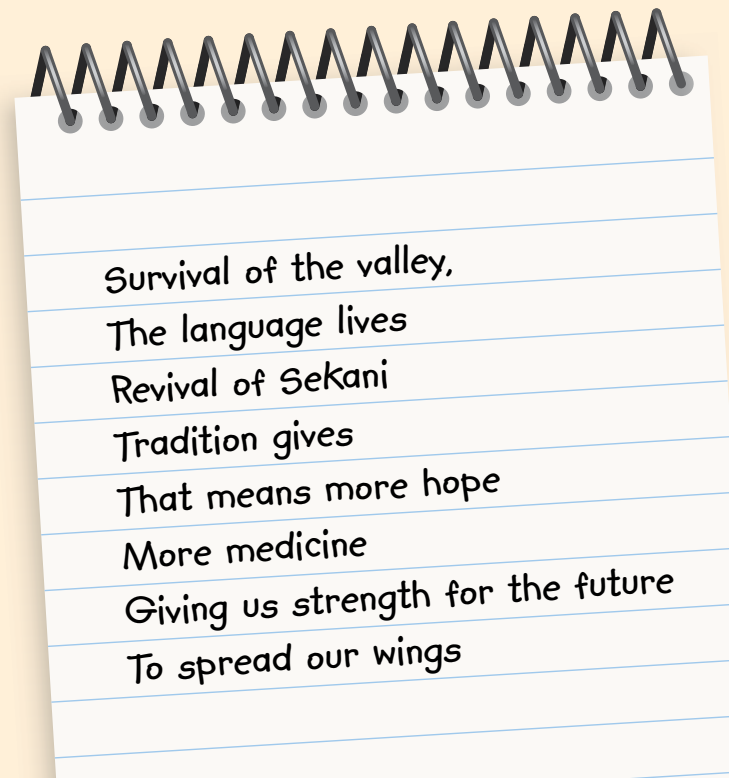 Survival of the valley,
The language lives
Revival of Sekani
Tradition gives
That means more hope
More medicine
Giving us strength for the future
To spread our wings